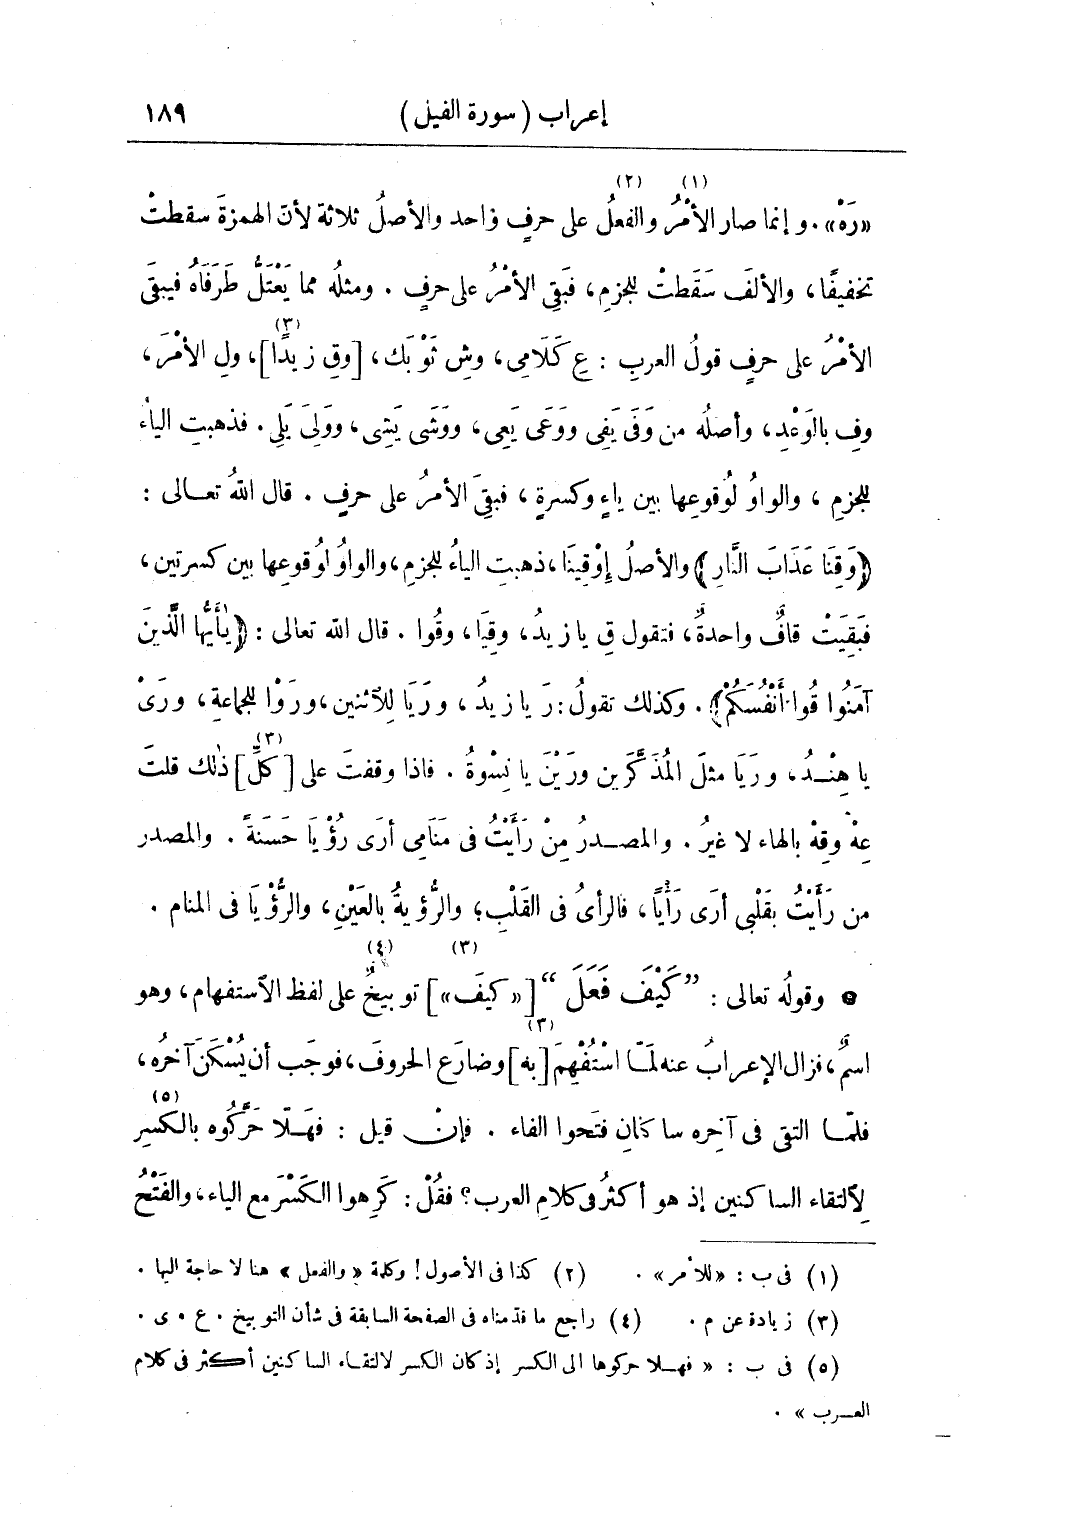 إعراب (سورة الفيل) ١٨٩
(١) (٢)
«رَهْ». و إنما صار الأمْرُ والفعلُ على حرفٍ واحد والأصلُ ثلاثة لأن الهمزةَ سقطتْ
تخفيفًا، والألفَ سَقَطتْ للجزمِ، فبَقِي الأمْرُ على حرفٍ . ومثلُه مما يَعْتَلُّ طَرَفَاهُ فيبقَى
(٣)
الأمْرُ على حرفٍ قولُ العربِ : عِ كَلَامِى، وشِ ثَوْبَك، [وقِ زيدًا]، ولِ الأمْرَ،
وفِ بالوَعْدِ، وأصلُه من وَفَى يَفِى ووَعَى يَعِى، ووَشَى يَشِى، ووَلِىَ يَلِى. فذهبتِ الياءُ
للجزمِ ، والواوُ لوُقوعِها بين ياءٍ وكسرةٍ ، فبقِىَ الأمرُ على حرفٍ . قال اللهُ تعـالى :
﴿وَقِنَا عَذَابَ النَّارِ﴾ والأصلُ إِوْقِينَا، ذهبتِ الياءُ للجزمِ، والواوُ لوُقوعِها بين كسرتين،
فبَقِيَتْ قافٌ واحدةٌ، فتقول قِ يا زيدُ، وقِيَا، وقُوا . قال الله تعالى : ﴿يٰأَيُّهَا الَّذِينَ
آمَنُوا قُوا أَنْفُسَكُمْ﴾ . وكذلك تقولُ: رَ يا زيدُ ، ورَيَا للاثنين، ورَوْا للجماعةِ، ورَىْ
(٣)
يا هِنْـدُ، ورَيَا مثلَ المُذَكَّرَين ورَيْنَ يا نِسْوةُ . فاذا وقفتَ على [كلِّ] ذٰلك قلتَ
عِهْ وقِهْ بالهاء لا غيرُ . والمصـدرُ مِنْ رَأَيْتُ فى مَنَامِى أرَى رُؤْيَا حَسَنةً . والمصدر
من رَأَيْتُ بقَلْبِى أرَى رَأْيًا، فالرأىُ فى القَلْبِ؛ والرُّؤيةُ بالعَيْنِ، والرُّؤْيَا فى المنام .
(٣) (٤)
● وقولُه تعالى : ”كَيْفَ فَعَلَ“ [«كيفَ»] توبيخٌ على لفظ الاستفهام، وهو
(٣)
اسمٌ، فزال الإعرابُ عنه لَمَّا اسْتُفْهِمَ [به] وضارَع الحروفَ، فوجَب أن يُسْكَنَ آخرُه،
(٥)
فلمّـا التقى فى آخِره ساكنانِ فتَحوا الفاء . فإنْ قيل : فهَـلَّا حَرَّكُوه بالكَسرِ
لِالتقاء الساكنين إذ هو أكثرُ فى كلامِ العرب؟ فقُلْ: كَرِهوا الكَسْرَ مع الياء، والفَتْحُ
(١) فى ب : «للأمر» . (٢) كذا فى الأصول! وكلمة «والفعل» هنا لا حاجة اليها .
(٣) زيادة عن م . (٤) راجع ما قدمناه فى الصفحة السابقة فى شأن التوبيخ . ع . ى .
(٥) فى ب : « فهـلا حركوها الى الكسر إذ كان الكسر لالتقـاء الساكنين أكثر فى كلام
العـرب» .